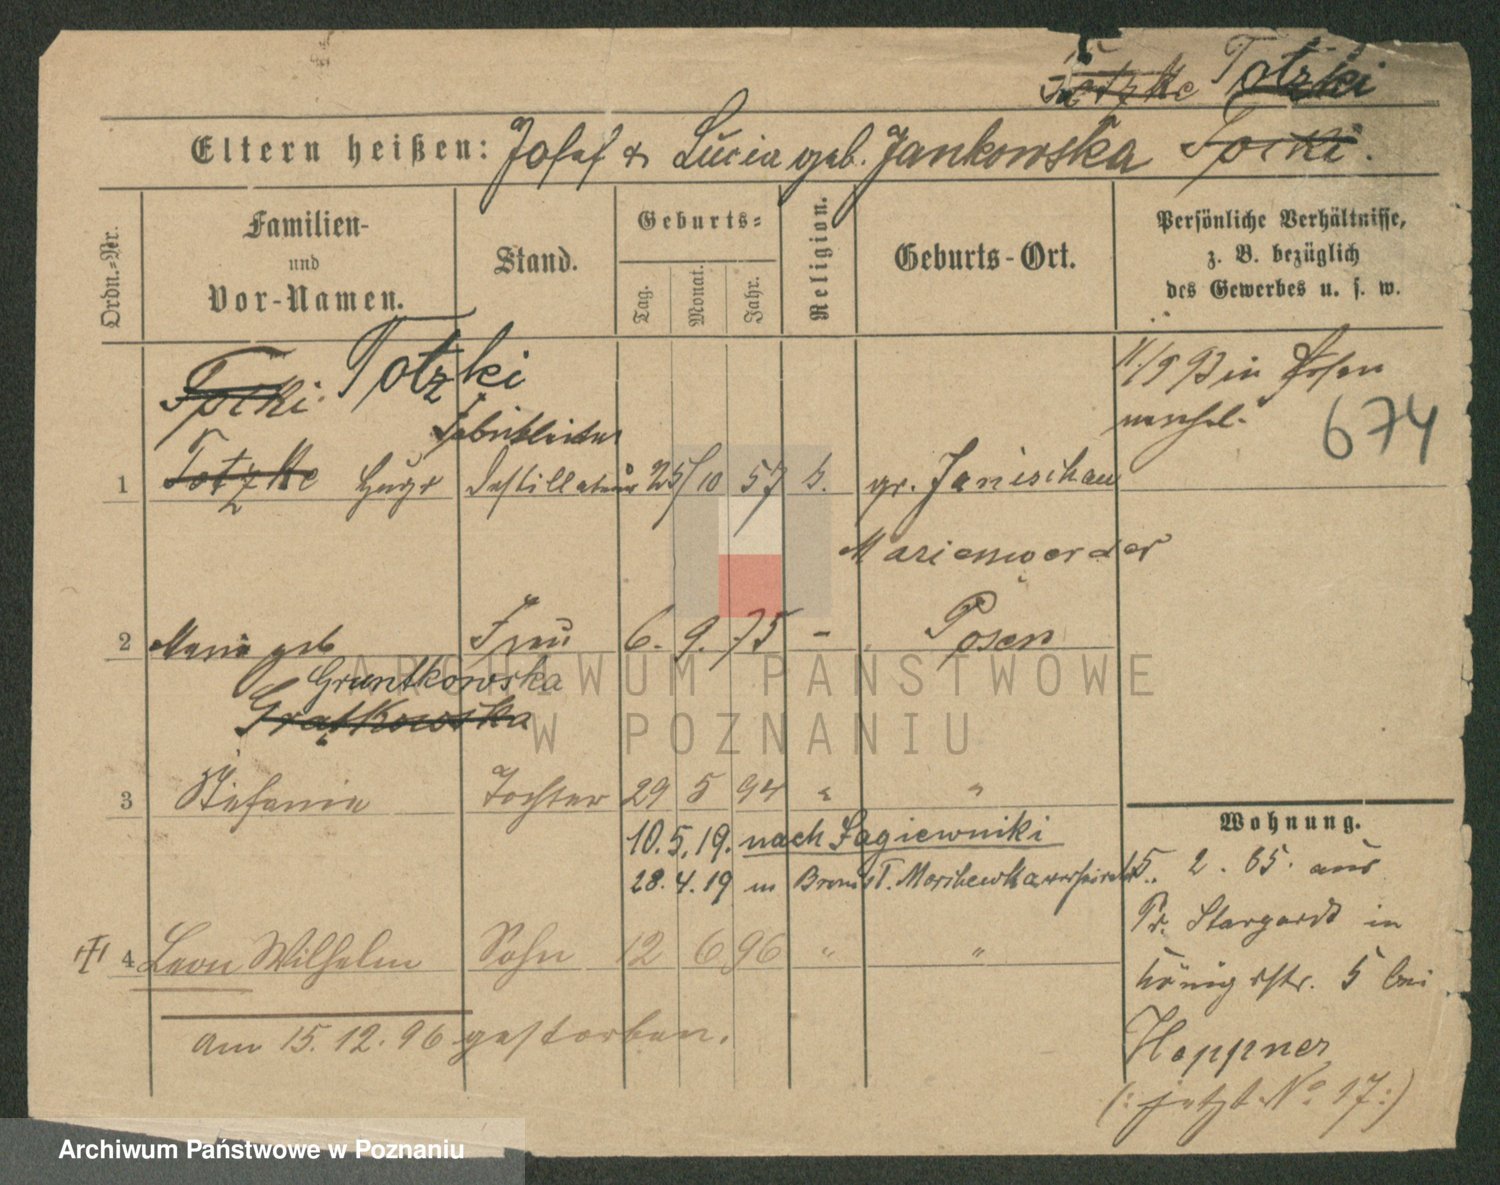 Totzke Totzki
Eltern heißen: Josef & Lucia geb. Jankowska Tocki.
Ordn.-Nr.
Familien-
und
Vor-Namen.
Stand.
Geburts-
Tag. Monat. Jahr.
Religion.
Geburts-Ort.
Persönliche Verhältnisse,
z. B. bezüglich
des Gewerbes u. s. w.
Tocki Totzki
11/9 93 in Posen
674
1 Totzke Hugo Destillateur 25/10 57 k. gr. Janischau
Marienwerder
2 Maria geb Frau 6. 9. 75 - Posen
Gruntkowska
Grątkowska
3 Stefania Tochter 29 5 94 " "
10.5.19. nach Łagiewniki
28.4.19 in
4 Leon Wilhelm Sohn 12 6 96 " "
am 15.12.96 gestorben.
Wohnung.
5. 2. 85. aus
Pr. Stargardt in
Königstr. 5 bei
Hoppner
(: jetzt No 17:)
ARCHIWUM PAŃSTWOWE
W POZNANIU
Archiwum Państwowe w Poznaniu